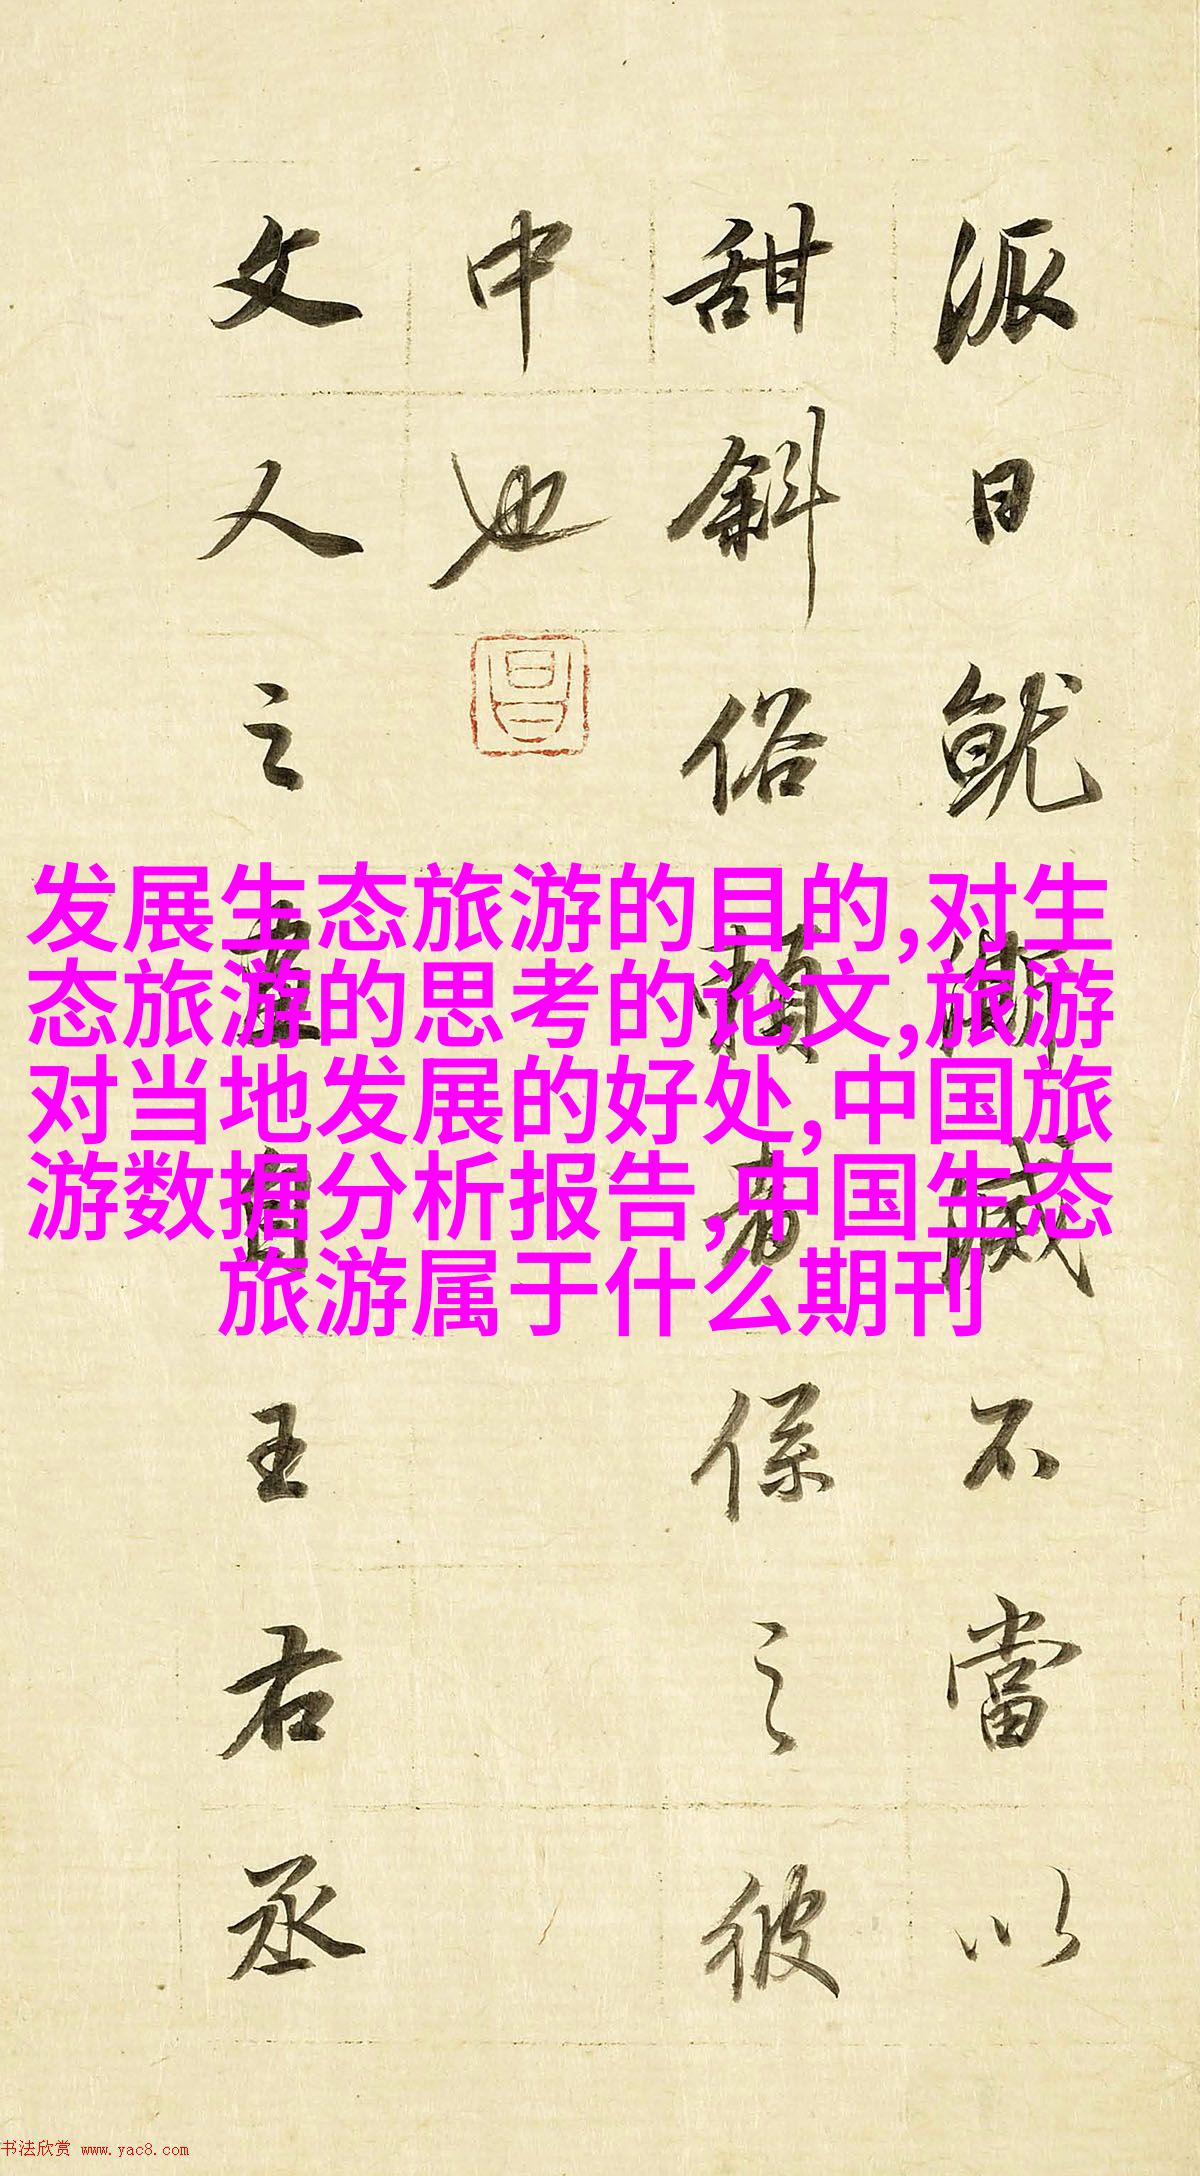 派日就澌滅不當以
甜斜俗賴者係之彼
中也
昌
文人之畫自王右丞
发展生态旅游的目的,对生
态旅游的思考的论文,旅游
对当地发展的好处,中国旅
游数据分析报告,中国生态
旅游属于什么期刊
书法欣赏 www.yac8.com